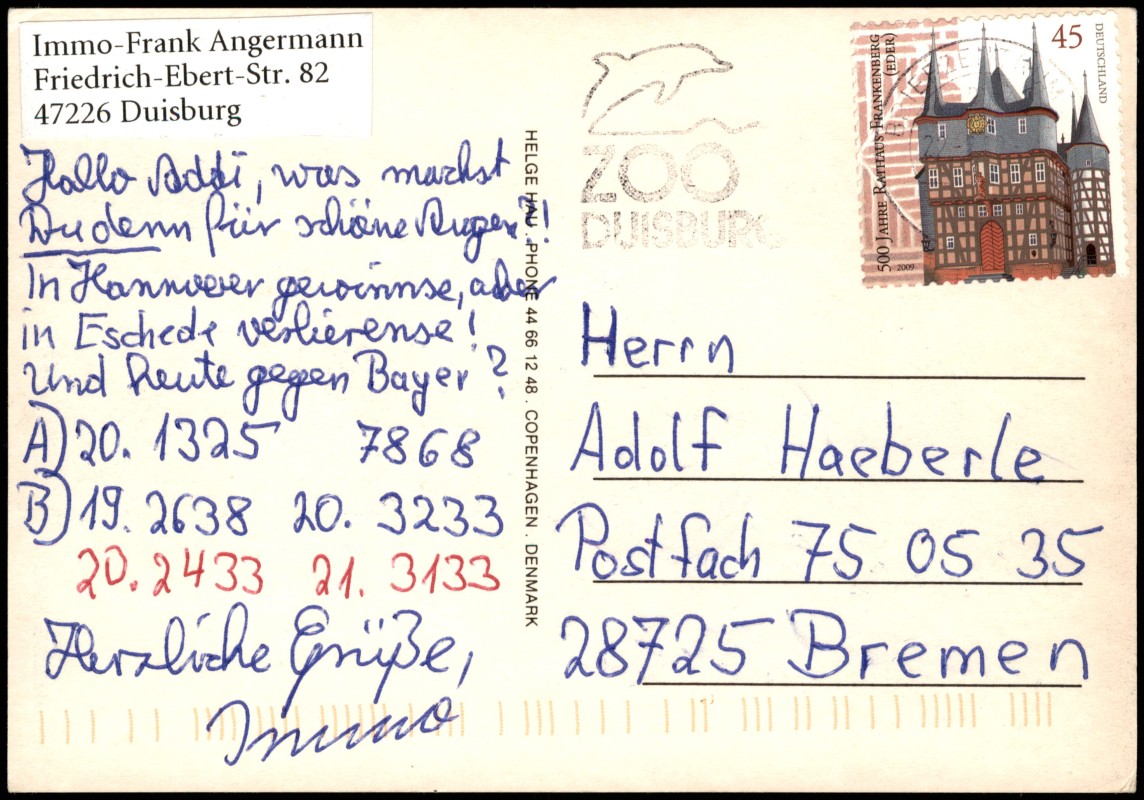 Immo-Frank Angermann
Friedrich-Ebert-Str. 82
47226 Duisburg
Hallo Addi, was machst
Du denn für schöne Augen?!
In Hannover gewinnse, aber
in Eschede verlierense!
Und heute gegen Bayer?
A) 20. 1325 7868
B) 19. 2638 20. 3233
20. 2433 21. 3133
Herzliche Grüße,
Immo
HELGE HAU . PHONE 44 66 12 48 . COPENHAGEN . DENMARK
ZOO
DUISBURG
500 JAHRE RATHAUS FRANKENBERG
(EDER)
2009
45
DEUTSCHLAND
Herrn
Adolf Haeberle
Postfach 75 05 35
28725 Bremen